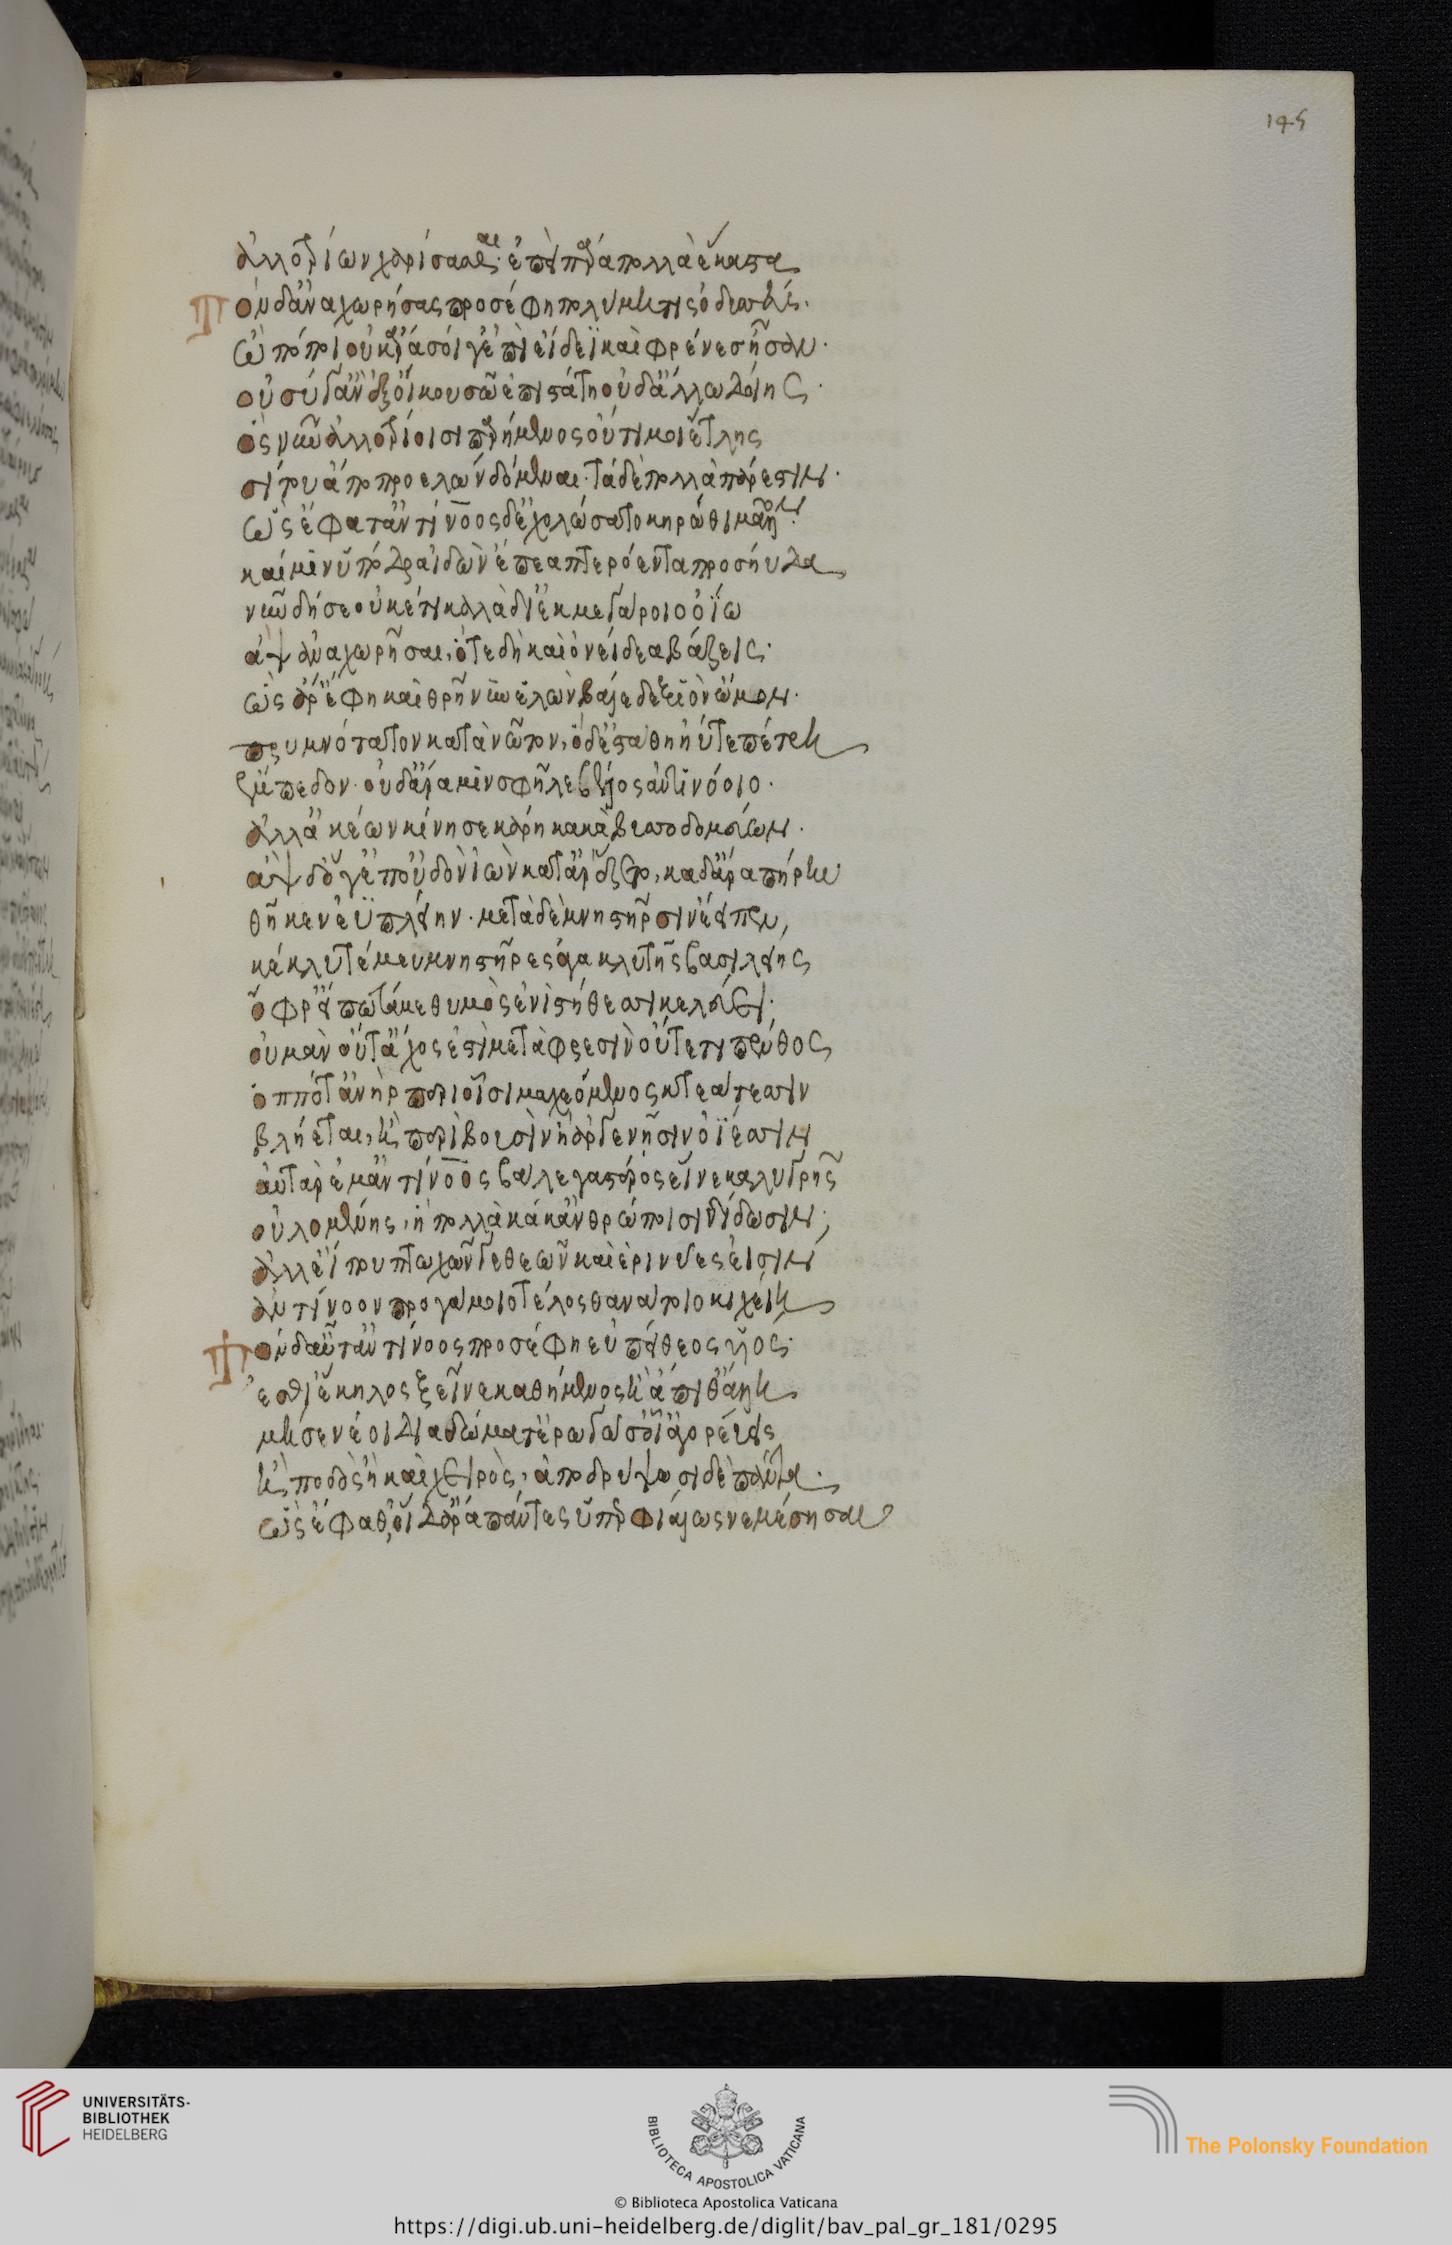 ἀλλοτρίων χαρίσασθαι· ἐπεὶ πάρα πολλὰ ἕκαστα
Τὸν δ' ἀναχωρήσας προσέφη πολύμητις ὀδυσσεύς·
ὢ πόποι οὐκ ἄρα σοί γ' ἐπὶ εἴδεϊ καὶ φρένες ἦσαν·
οὐ σύ γ' ἂν ἐξ οἴκου σῶ ἐπιστάτη οὐδ' ἅλα δοίης·
ὃς νῦν ἀλλοτρίοισι παρήμενος οὔτι μοι ἔτλης
σίτου ἀποπροελὼν δόμεναι· τὰ δὲ πολλὰ πάρεστιν·
ὣς ἔφατ' ἀντίνοος δὲ χολώσατο κηρόθι μᾶλλον·
καί μιν ὑπόδρα ἰδὼν ἔπεα πτερόεντα προσηύδα
νῦν δή σε οὐκέτι καλὰ διὲκ μεγάροιο ὀΐω
ἂψ ἀναχωρῆσαι, ὅτε δὴ καὶ ὀνείδεα βάζεις·
ὣς ἄρ' ἔφη καὶ θρῆνυν ἑλὼν βάλε δεξιὸν ὦμον·
πρυμνότατον κατὰ νῶτον, ὁ δ' ἐστάθη ἠΰτε πέτρη
ἔμπεδον· οὐδ' ἄρα μιν σφῆλε βέλος ἀντινόοιο·
ἀλλ' ἀκέων κίνησε κάρη κακὰ βυσσοδομεύων·
ἂψ δ' ὅ γ' ἐπ' οὐδὸν ἰὼν κατ' ἄρ' ἕζετο, καδ' ἄρα πήρην
θῆκεν ἐϋπλείην· μετὰ δὲ μνηστῆρσιν ἔειπεν,
κέκλυτέ μευ μνηστῆρες ἀγακλυτῆς βασιλείης
ὄφρ' εἴπω τά με θυμὸς ἐνὶ στήθεσσι κελεύει·
οὐ μὰν οὔτ' ἄχος ἐστὶ μετὰ φρεσὶν οὔτέ τι πένθος
ὁππότ' ἀνὴρ περὶ οἷσι μαχεόμενος κτεάτεσσιν
βλήεται, ἢ περὶ βουσὶν ἢ ἀργεννῆσιν ὀΐεσσιν
αὐτὰρ ἔμ' ἀντίνοος βάλε γαστρὸς εἵνεκα λυγρῆς
οὐλομένης, ἣ πολλὰ κάκ' ἀνθρώποισι δίδωσιν,
ἀλλ' εἴ που πτωχῶν γε θεῶν καὶ ἐρινύες εἰσὶν
ἀντίνοον πρὸ γάμοιο τέλος θανάτοιο κιχείη
Τὸν δ' αὖτ' ἀντίνοος προσέφη εὐπείθεος υἱός·
ἔσθι' ἕκηλος ξεῖνε καθήμενος ἢ ἄπιθ' ἄλλη
μή σε νέοι διὰ δώματ' ἐρύσωσ' οἷ' ἀγορεύεις
ἢ ποδὸς ἢ καὶ χειρὸς, ἀποδρύψωσι δὲ πάντα·
ὣς ἔφαθ', οἱ δ' ἄρα πάντες ὑπερφιάλως νεμέσησαν
UNIVERSITÄTS-
BIBLIOTHEK
HEIDELBERG
BIBLIOTECA APOSTOLICA VATICANA
The Polonsky Foundation
© Biblioteca Apostolica Vaticana
https://digi.ub.uni-heidelberg.de/diglit/bav_pal_gr_181/0295